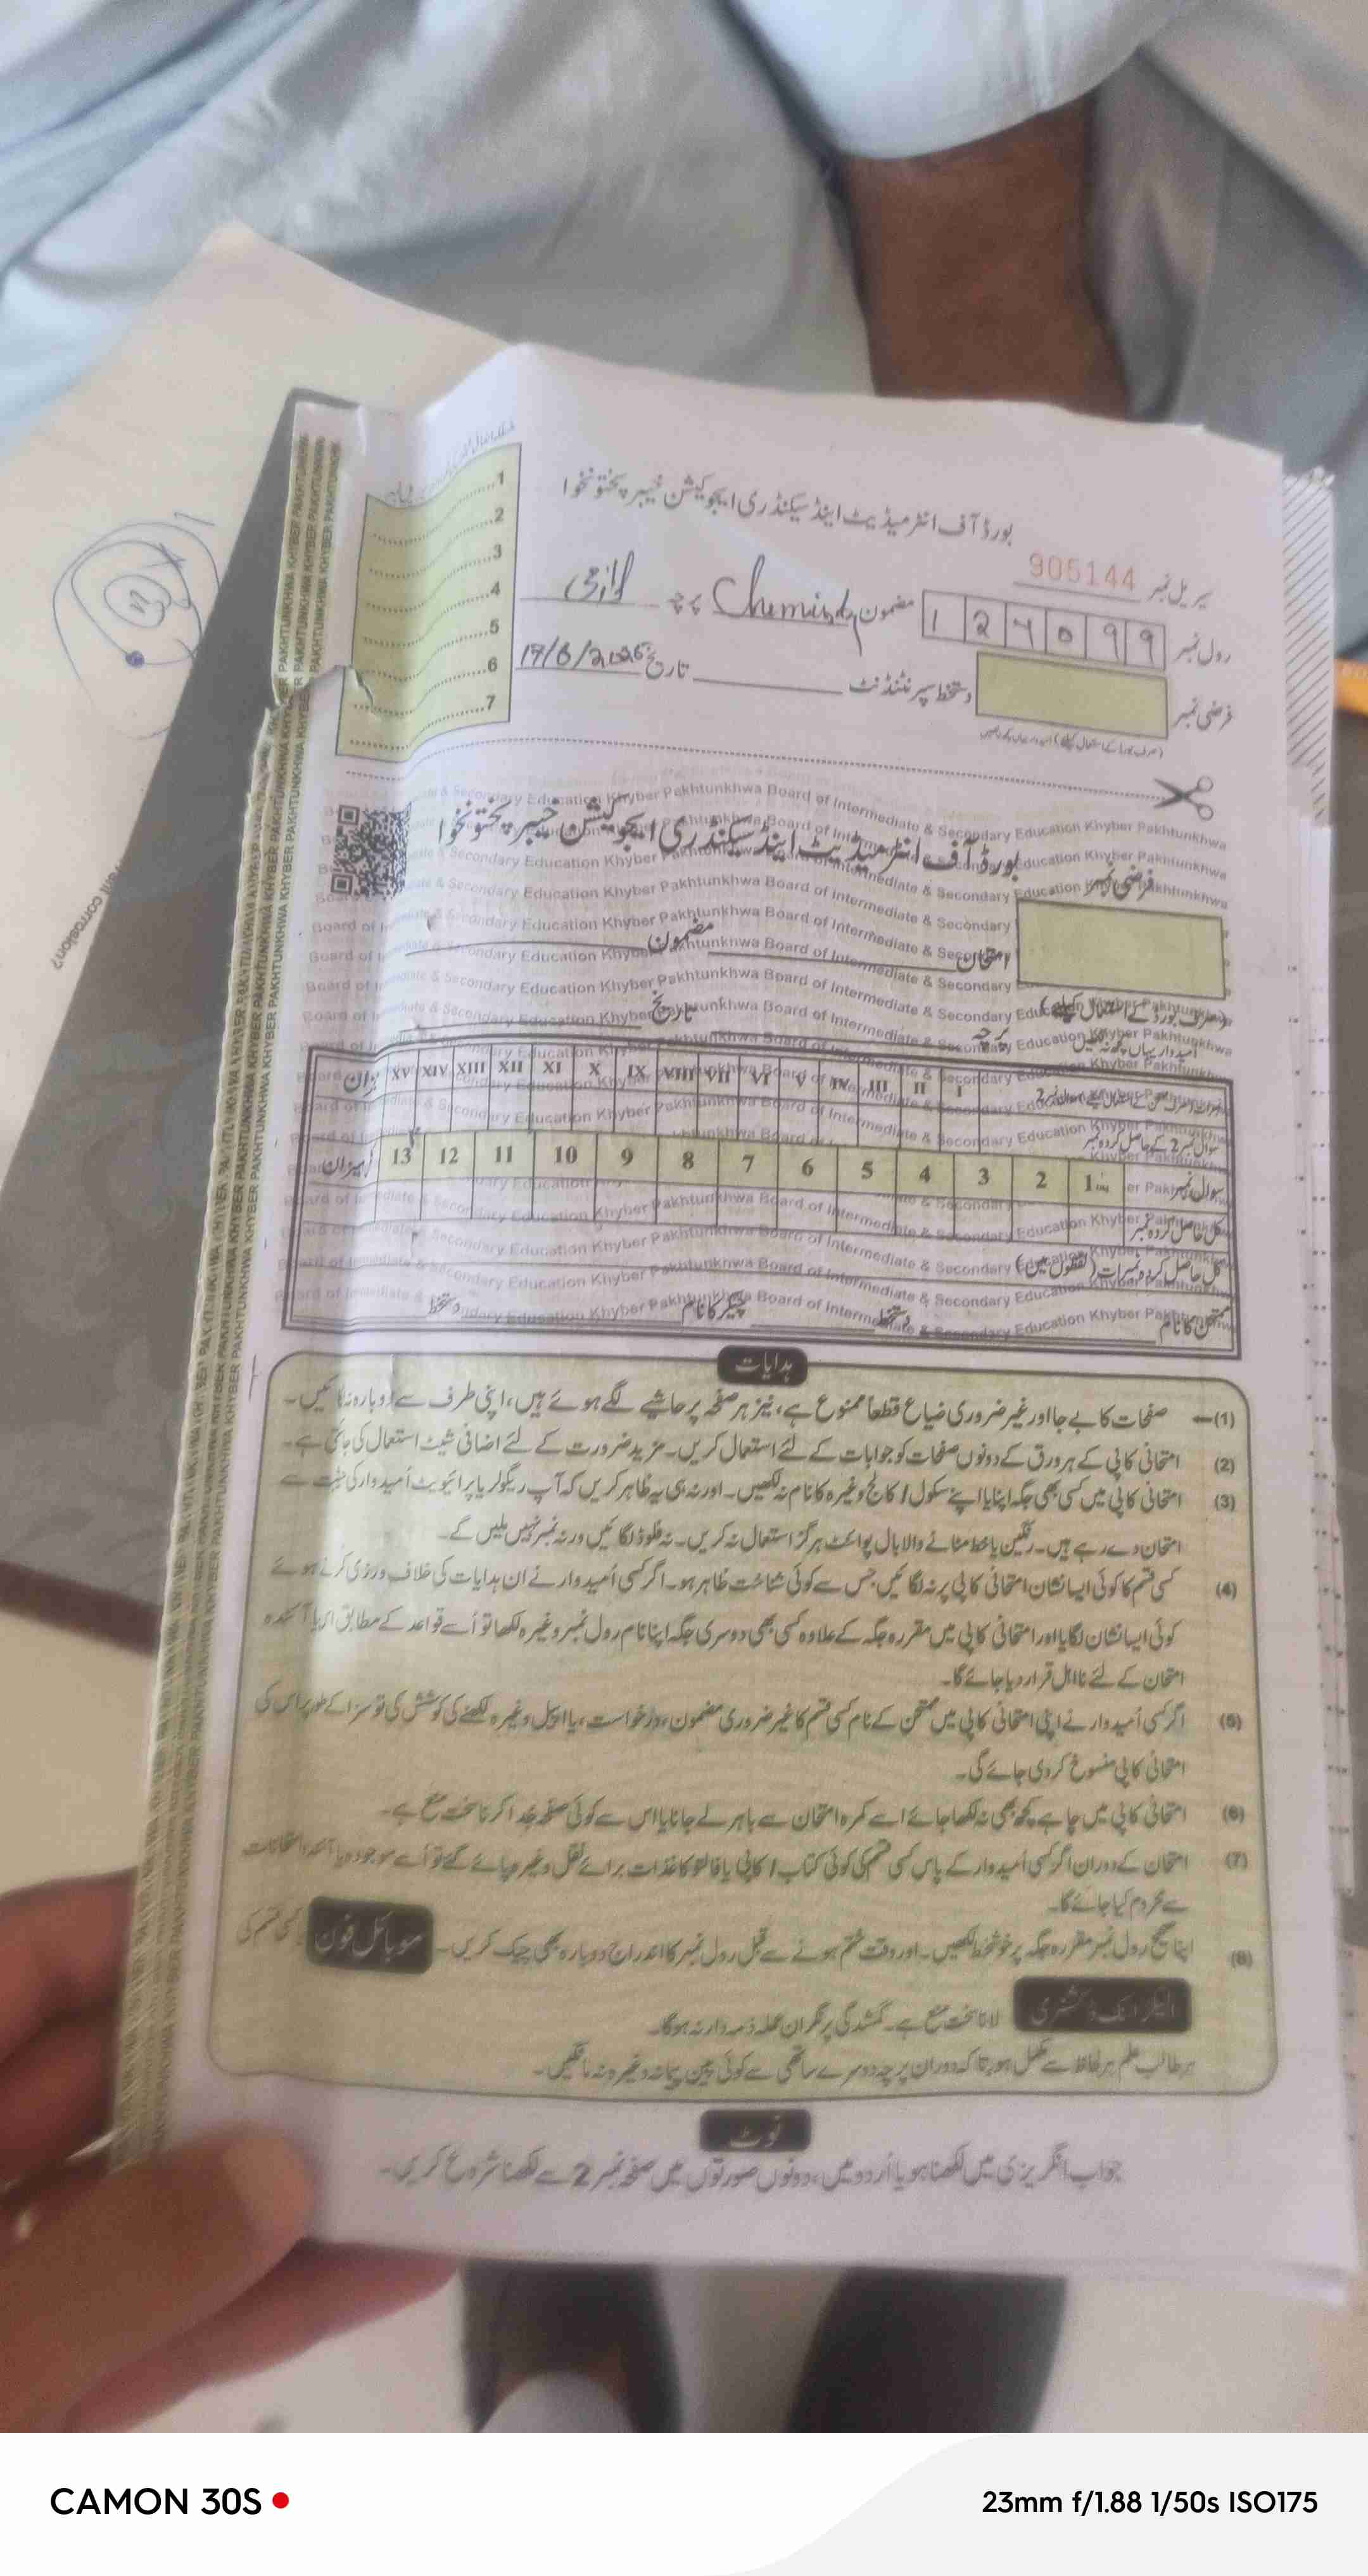 1
2
3
4
5
6
7
بورڈ آف انٹرمیڈیٹ اینڈ سیکنڈری ایجوکیشن خیبر پختونخوا
سیریل نمبر 905144
رول نمبر 1 2 4 0 9 9 مضمون Chemistry پرچہ لازمی
فرضی نمبر دستخط سپرنٹنڈنٹ تاریخ 17/6/2025
بورڈ آف انٹرمیڈیٹ اینڈ سیکنڈری ایجوکیشن خیبر پختونخوا
فرضی نمبر
امتحان مضمون
(صرف بورڈ کے استعمال کیلئے)
امیدوار یہاں کچھ نہ لکھیں
پرچہ تاریخ
I II III IV V VI VII VIII IX X XI XII XIII XIV XV میزان
سوال نمبر 2 کے حاصل کردہ نمبر
سوال نمبر 1 2 3 4 5 6 7 8 9 10 11 12 13 میزان
کل حاصل کردہ نمبر
کل حاصل کردہ نمبرات (لفظوں میں)
ممتحن کا نام دستخط چیکر کا نام دستخط
Board of Intermediate & Secondary Education Khyber Pakhtunkhwa
KHYBER PAKHTUNKHWA
ہدایات
(1)– صفحات کا بے جا اور غیر ضروری ضیاع قطعاً ممنوع ہے، نیز ہر صفحہ پر حاشیے لگے ہوئے ہیں، اپنی طرف سے دوبارہ نہ لگائیں۔
(2) امتحانی کاپی کے ہر ورق کے دونوں صفحات کو جوابات کے لئے استعمال کریں۔ مزید ضرورت کے لئے اضافی شیٹ استعمال کی جاتی ہے۔
(3) امتحانی کاپی میں کسی بھی جگہ اپنا یا اپنے سکول / کالج وغیرہ کا نام نہ لکھیں۔ اور نہ ہی یہ ظاہر کریں کہ آپ ریگولر یا پرائیویٹ اُمیدوار کی حیثیت سے
امتحان دے رہے ہیں۔ رنگین یا خط مٹانے والا بال پوائنٹ ہرگز استعمال نہ کریں۔ نہ فلوڈ لگائیں ورنہ نمبر نہیں ملیں گے۔
(4) کسی قسم کا کوئی ایسا نشان امتحانی کاپی پر نہ لگائیں جس سے کوئی شناخت ظاہر ہو۔ اگر کسی اُمیدوار نے ان ہدایات کی خلاف ورزی کرتے ہوئے
کوئی ایسا نشان لگایا اور امتحانی کاپی میں مقررہ جگہ کے علاوہ کسی بھی دوسری جگہ اپنا نام رول نمبر وغیرہ لکھا تو اُسے قواعد کے مطابق اس یا آئندہ
امتحان کے لئے نااہل قرار دیا جائے گا۔
(5) اگر کسی اُمیدوار نے اپنی امتحانی کاپی میں ممتحن کے نام کسی قسم کا غیر ضروری مضمون، درخواست، یا اپیل وغیرہ لکھنے کی کوشش کی تو سزا کے طور پر اس کی
امتحانی کاپی منسوخ کر دی جائے گی۔
(6) امتحانی کاپی میں چاہے کچھ بھی نہ لکھا جائے اسے کمرہ امتحان سے باہر لے جانا یا اس سے کوئی صفحہ جُدا کرنا سخت منع ہے۔
(7) امتحان کے دوران اگر کسی اُمیدوار کے پاس کسی قسم کی کوئی کتاب / کاپی یا فالتو کاغذات برائے نقل وغیرہ پائے گئے تو اُسے موجودہ یا آئندہ امتحانات
سے محروم کیا جائے گا۔
(8) اپنا صحیح رول نمبر مقررہ جگہ پر خوشخط لکھیں۔ اور وقت ختم ہونے سے قبل رول نمبر کا اندراج دوبارہ بھی چیک کریں۔ موبائل فون یا کسی قسم کی
الیکٹرانک ڈکشنری لانا سخت منع ہے۔ گمشدگی پر نگران عملہ ذمہ دار نہ ہوگا۔
ہر طالب علم ہر لحاظ سے مکمل ہو، تاکہ دوران پرچہ دوسرے ساتھی سے کوئی پین پیمانہ وغیرہ نہ مانگیں۔
نوٹ
جواب انگریزی میں لکھنا ہو یا اُردو میں، دونوں صورتوں میں صفحہ نمبر 2 سے لکھنا شروع کریں۔
corrosion?
CAMON 30S
23mm f/1.88 1/50s ISO175